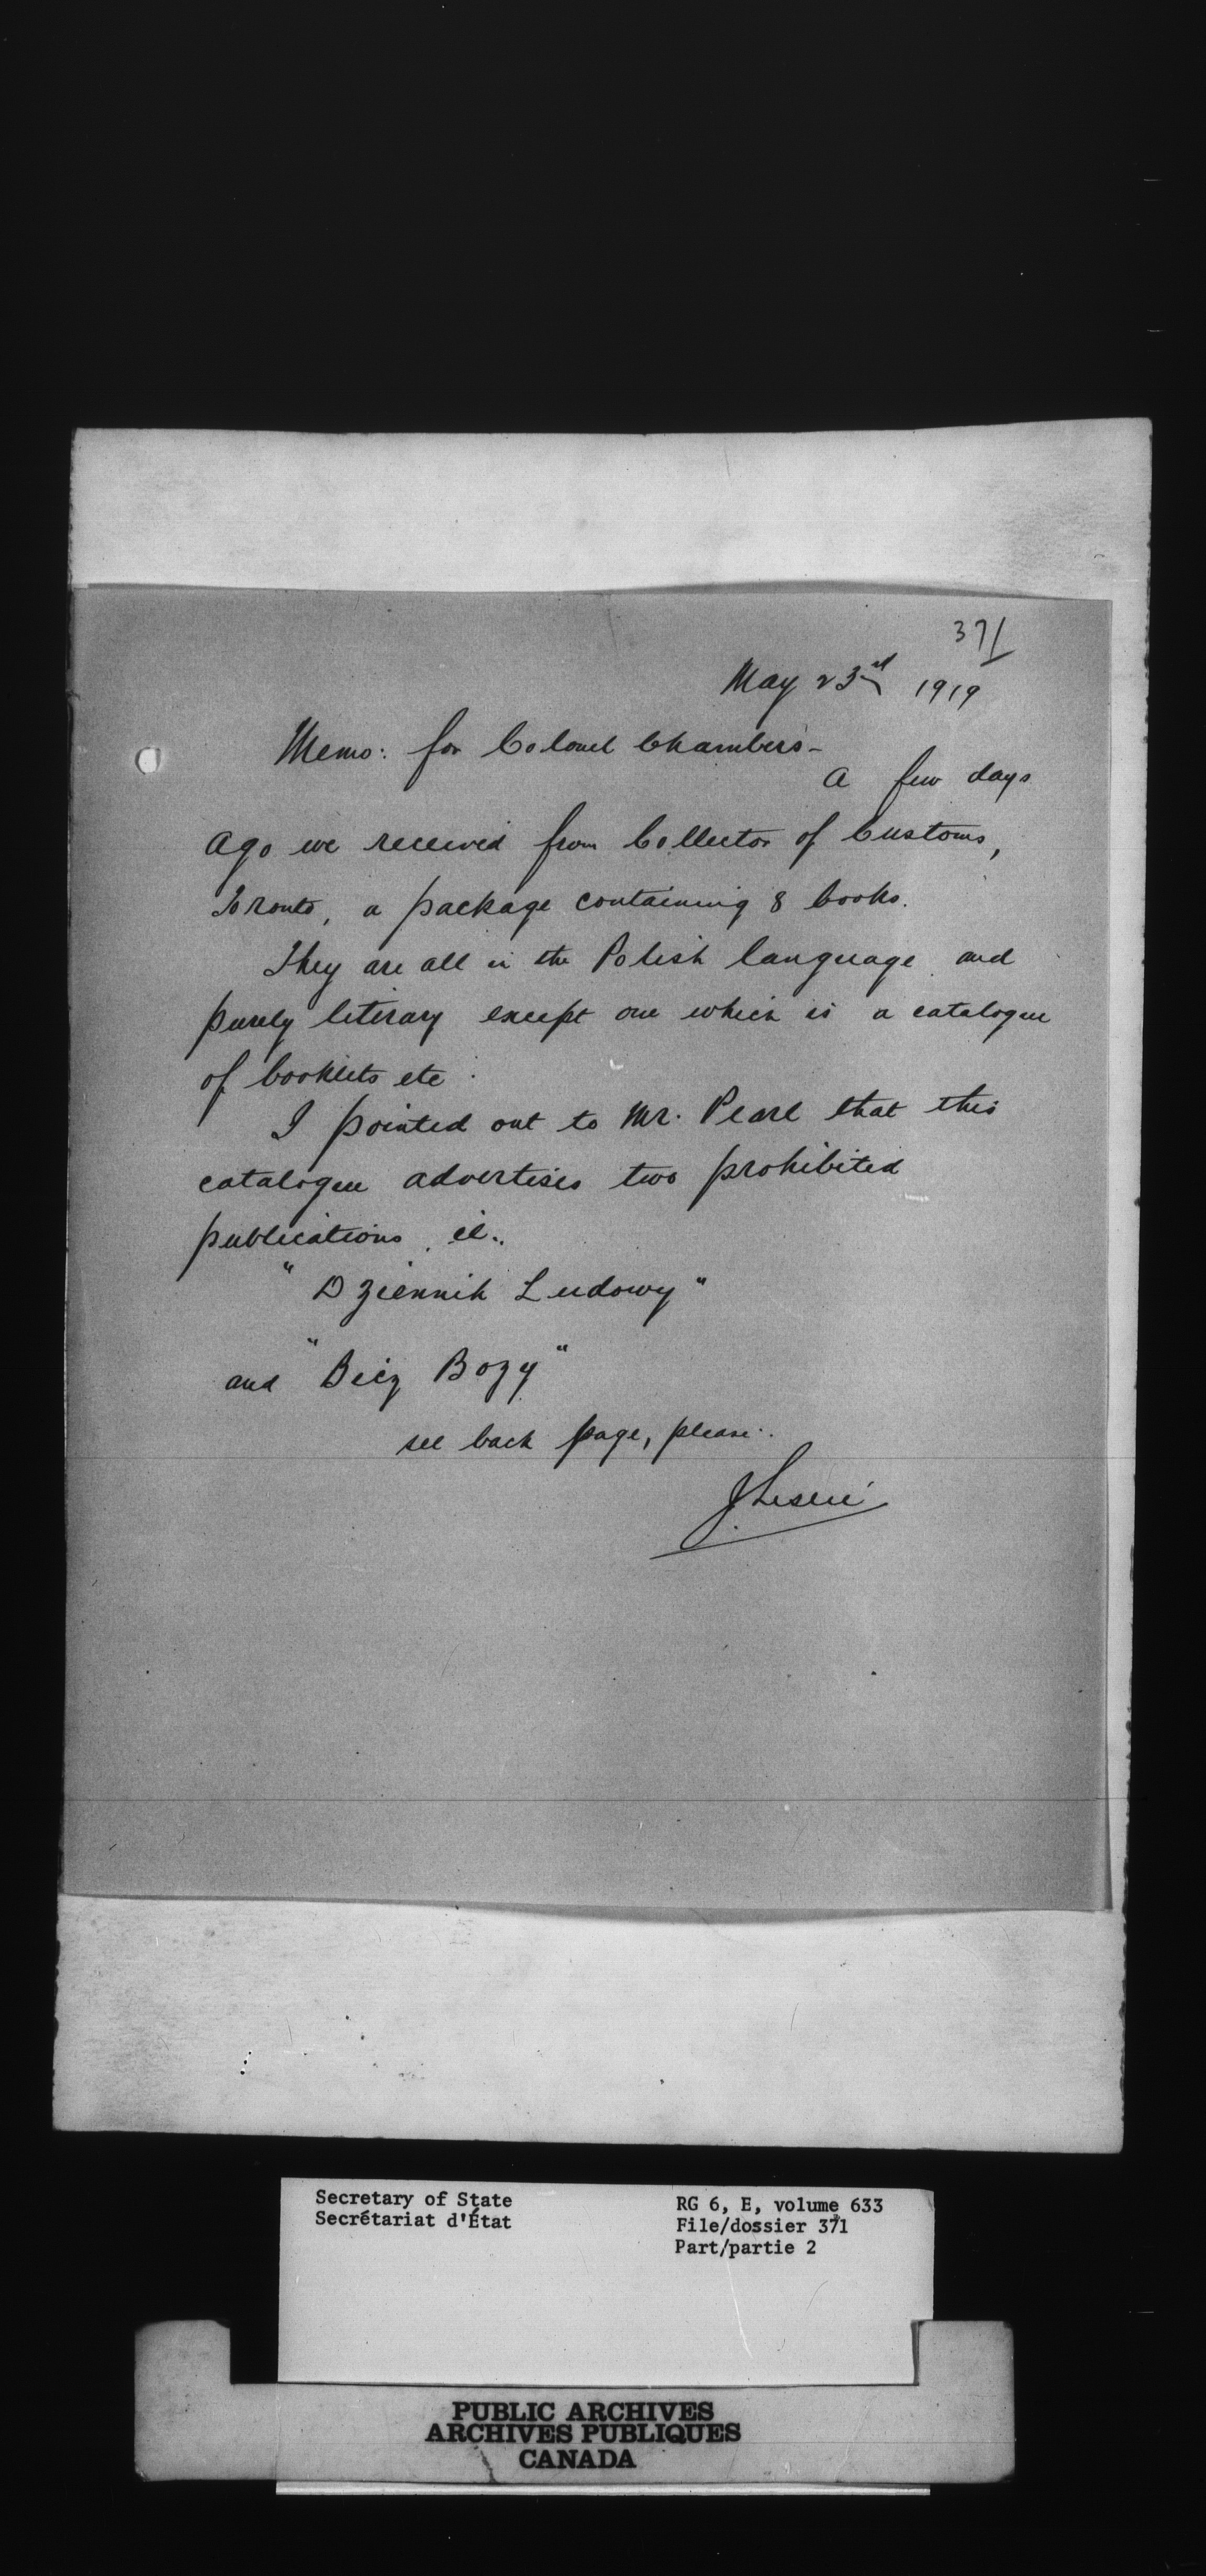 371
May 23rd 1919
Memo: for Colonel Chambers-
A few days
ago we received from Collector of Customs,
Toronto, a package containing 8 books.
They are all in the Polish language and
purely literary except one which is a catalogue
of booklets etc.
I pointed out to Mr. Pearl that this
catalogue advertises two prohibited
publications, ie..
"Dziennik Ludowy"
and "Bicz Bozy"
see back page, please.
Secretary of State
Secrétariat d'État
RG 6, E, volume 633
File/dossier 371
Part/partie 2
PUBLIC ARCHIVES
ARCHIVES PUBLIQUES
CANADA